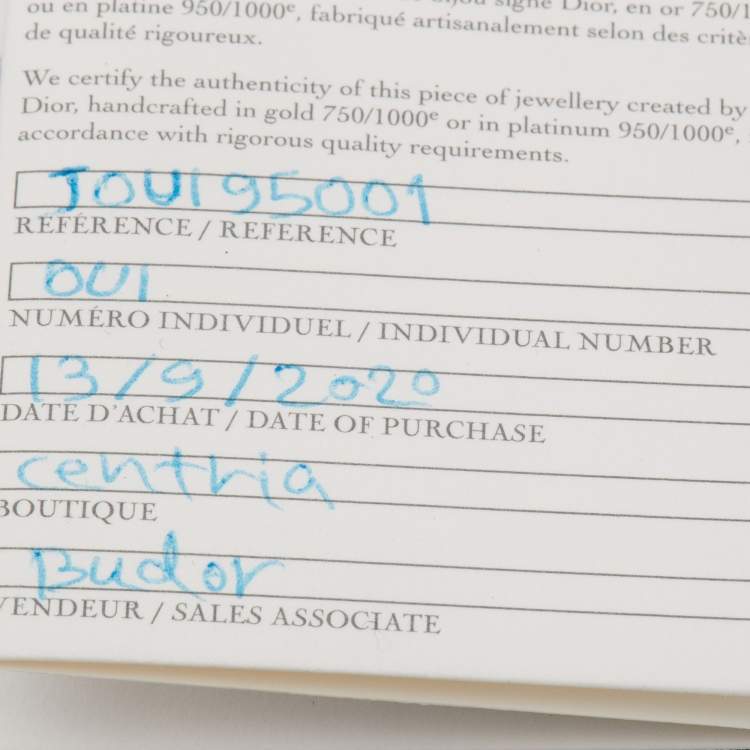 ou en platine 950/1000e, fabriqué artisanalement selon des critè
de qualité rigoureux.
We certify the authenticity of this piece of jewellery created by
Dior, handcrafted in gold 750/1000e or in platinum 950/1000e,
accordance with rigorous quality requirements.
JOUI95001
RÉFÉRENCE / REFERENCE
OUI
NUMÉRO INDIVIDUEL / INDIVIDUAL NUMBER
13/9/2020
DATE D'ACHAT / DATE OF PURCHASE
centria
BOUTIQUE
Budor
VENDEUR / SALES ASSOCIATE